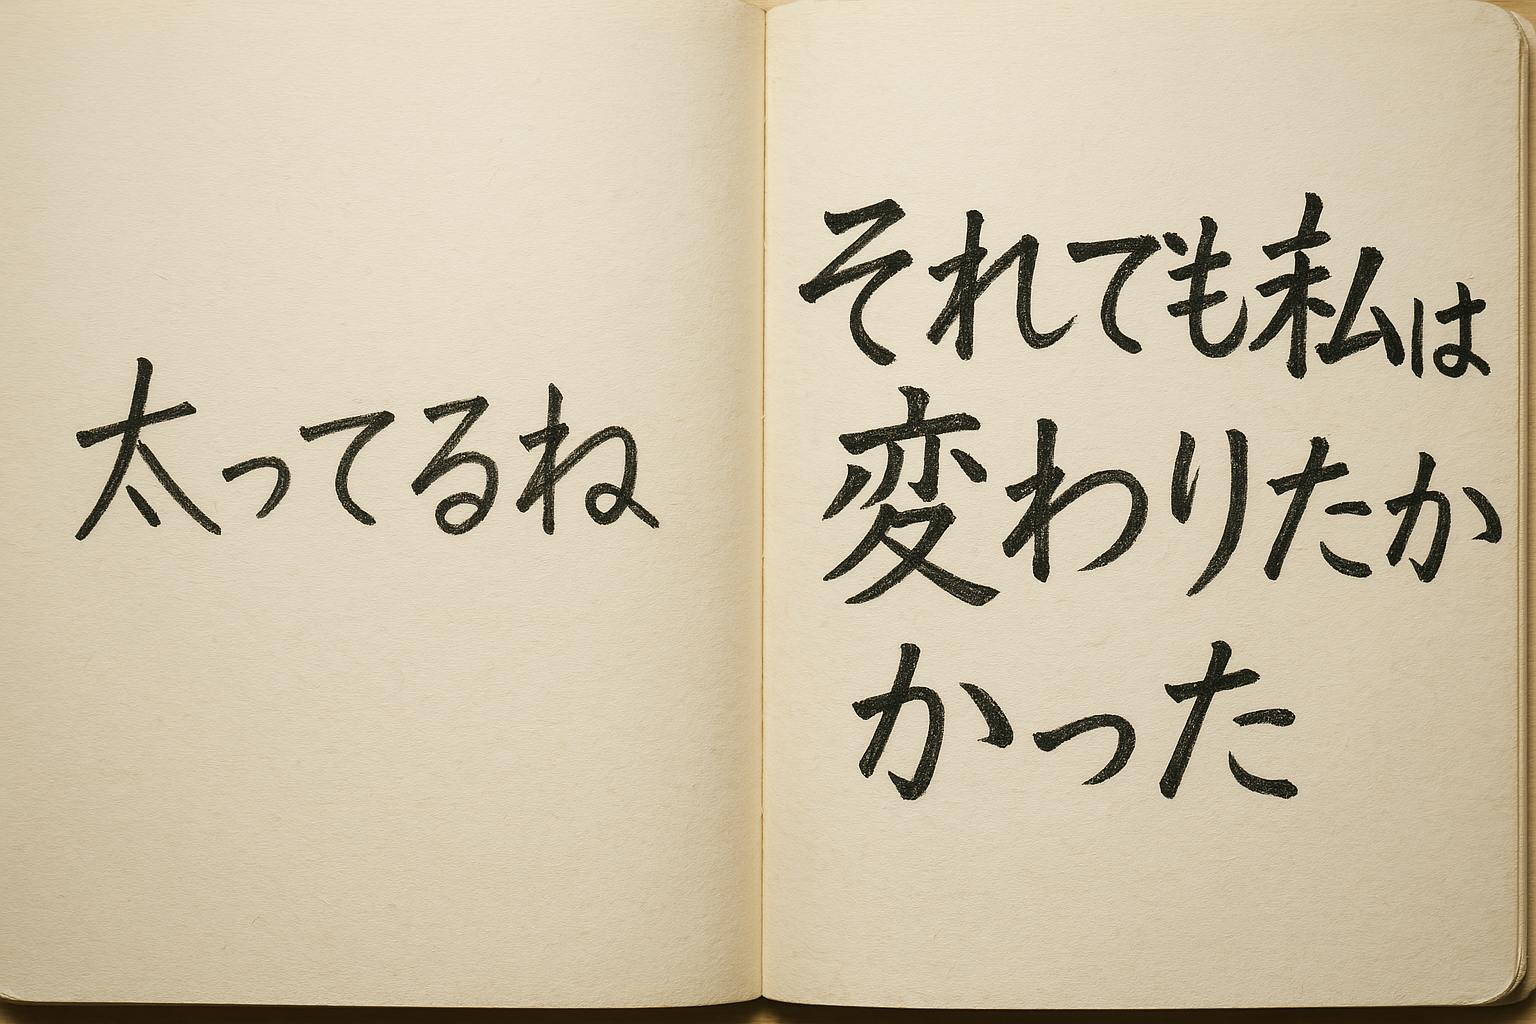 太ってるね
それでも私は
変わりたか
かった